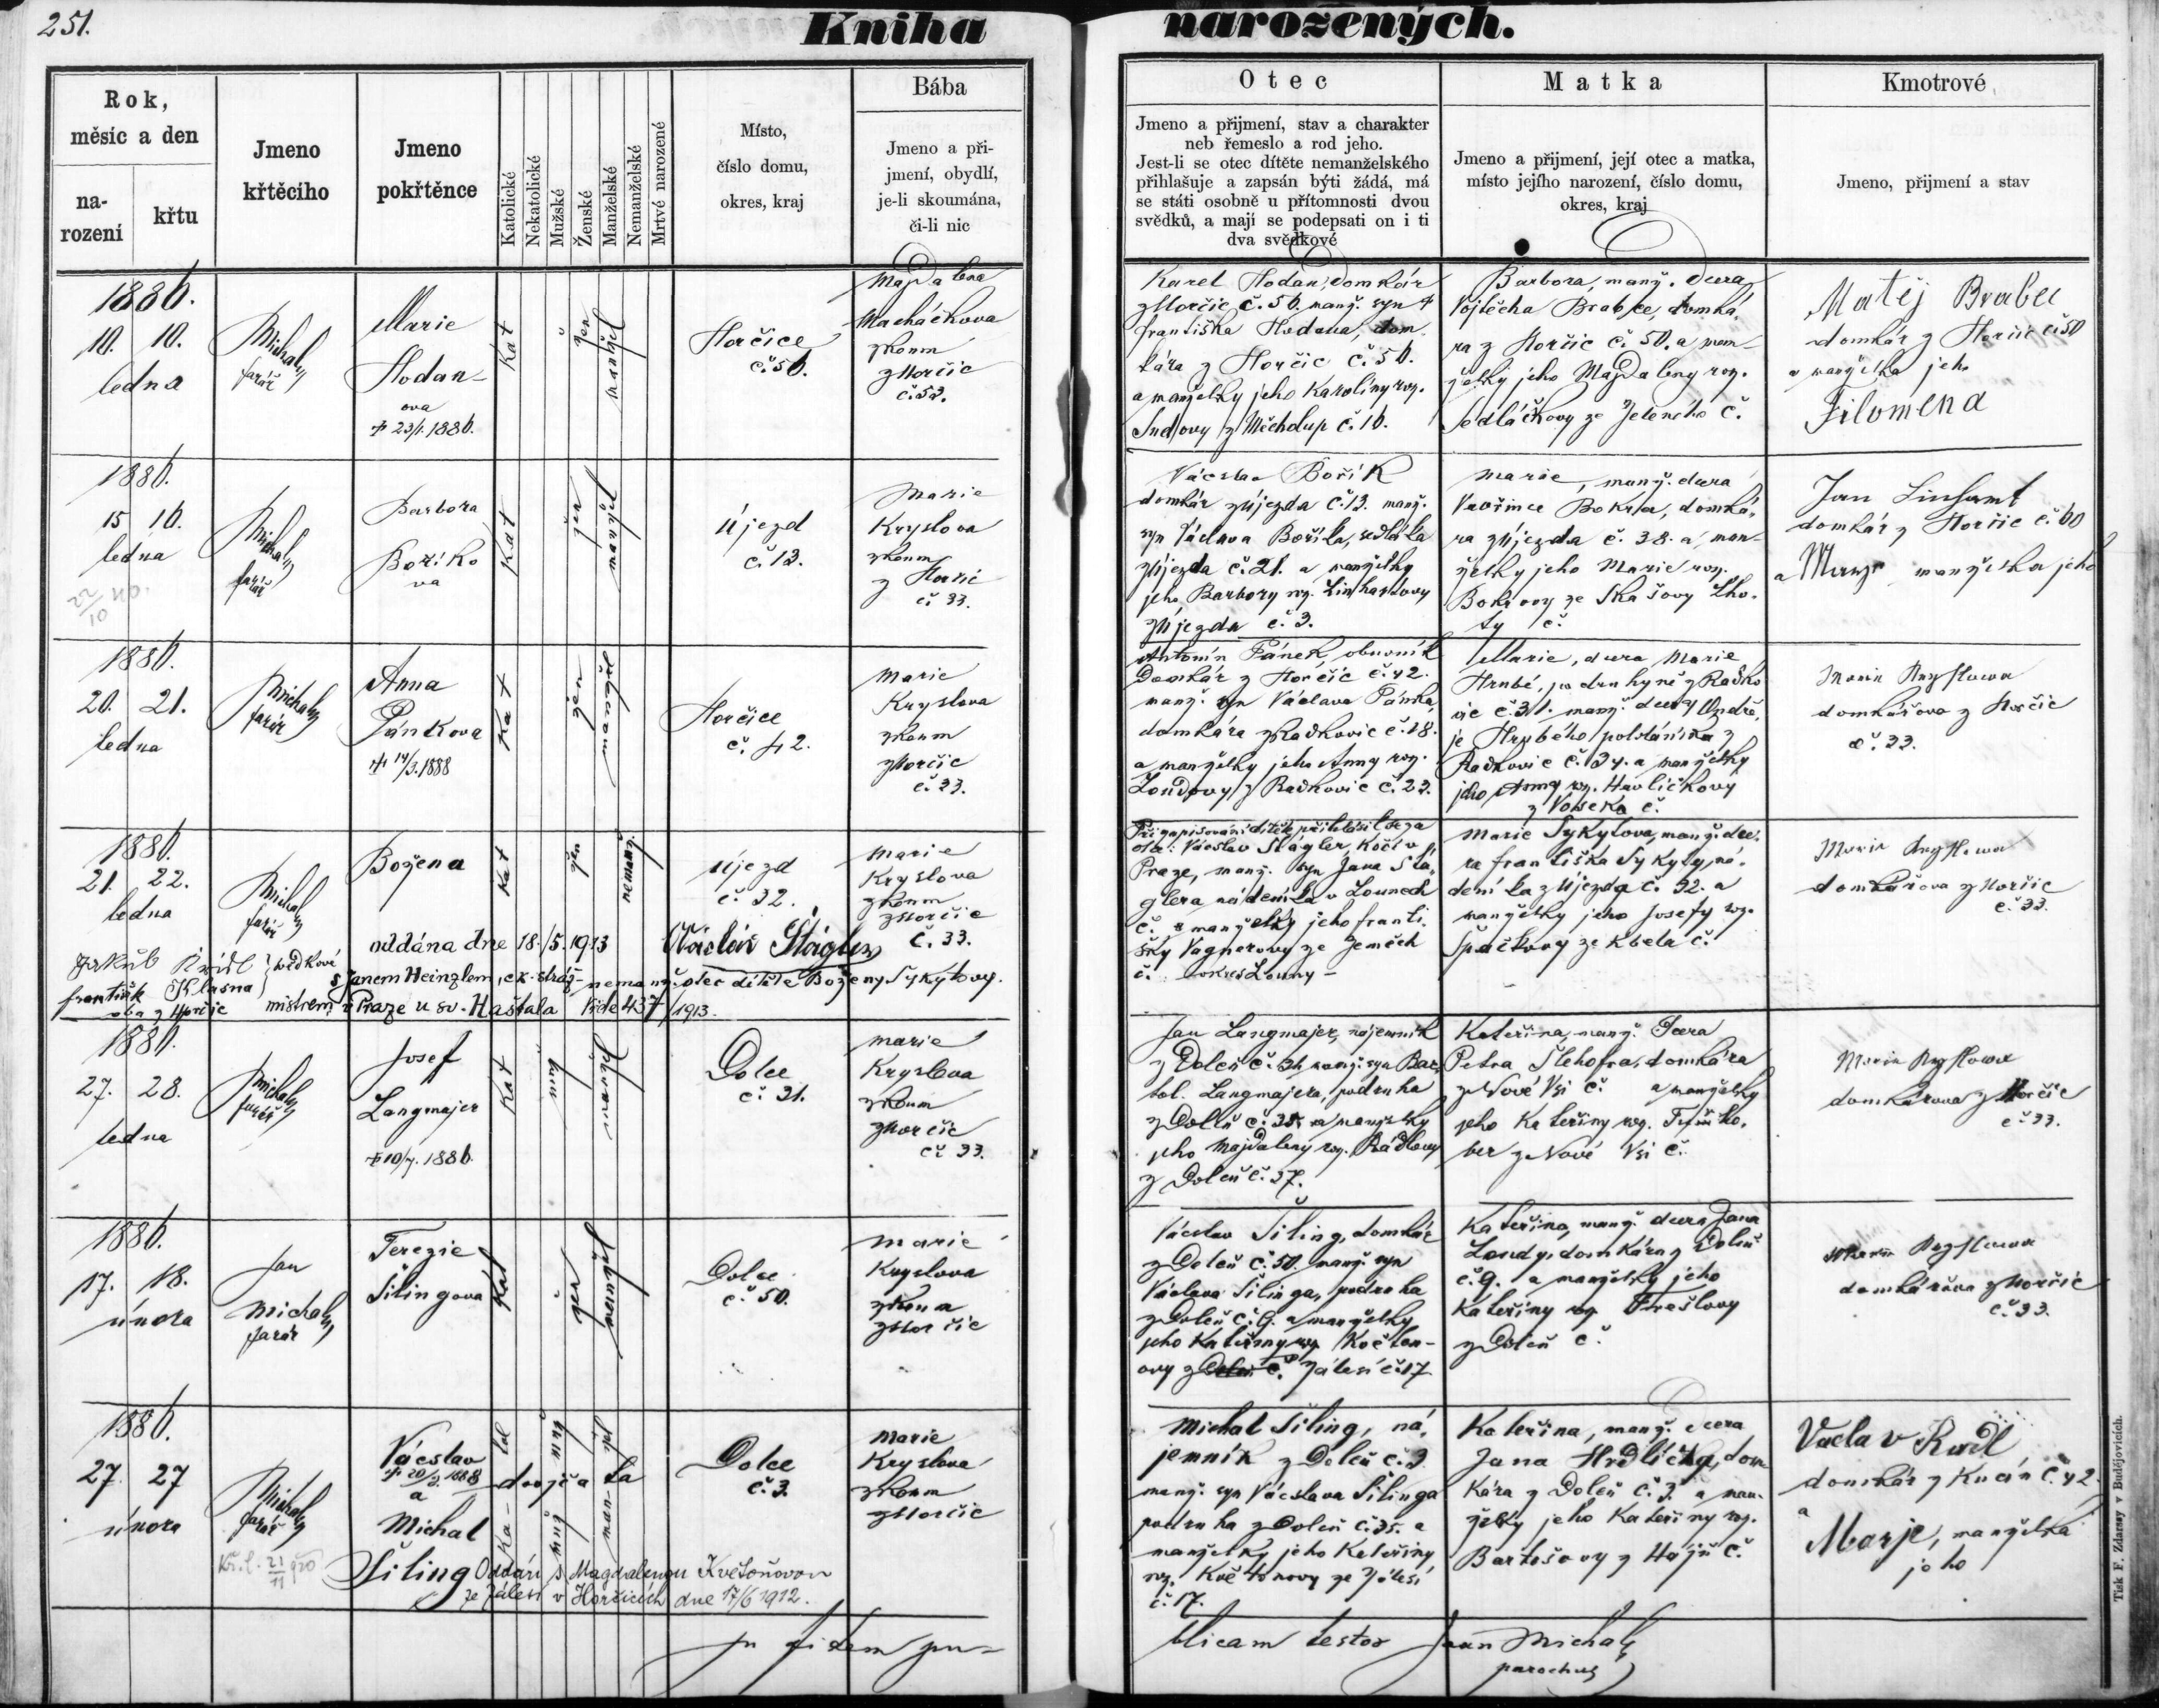 251.
Kniha narozených.
Rok,
měsíc a den
na-
rození
křtu
Jmeno
křtěcího
Jmeno
pokřtěnce
Katolické
Nekatolické
Mužské
Ženské
Manželské
Nemanželské
Mrtvé narozené
Místo,
číslo domu,
okres, kraj
Bába
Jmeno a pří-
jmení, obydlí,
je-li skoumána,
či-li nic
Otec
Jmeno a přijmení, stav a charakter
neb řemeslo a rod jeho.
Jest-li se otec dítěte nemanželského
přihlašuje a zapsán býti žádá, má
se státi osobně u přítomnosti dvou
svědků, a mají se podepsati on i ti
dva svědkové
Matka
Jmeno a přijmení, její otec a matka,
místo jejího narození, číslo domu,
okres, kraj
Kmotrové
Jmeno, přijmení a stav
1886.
10. 10.
ledna
Michal
farář
Marie
Hodan-
ova
† 23/1. 1886.
Kat
žen
manžel
Horčice
č. 56.
Magdalena
Macháčkova
zkoum
z Horčic
č. 53.
Karel Hodan, domkár
z Horčic č. 56. manž. syn †
Františka Hodana, dom-
kára z Horčic č. 56.
a manželky jeho Karoliny roz.
z Měcholup č. 16.
Barbora, manž. dcera
Vojtěcha Brabce, domká-
ra z Horčic č. 50. a man-
želky jeho Magdaleny roz.
Sedláčkovy ze Zeleného č.
Matěj Brabec
domkár z Horčic č 50
a manželka jeho
Filomena
1886.
15 16.
ledna
22/10 40.
Michal
farář
Barbora
Boříko
va
Kat
žen
manžel
Újezd
č. 13.
Marie
Kryslova
zkoum
z Horčic
č 33.
Vácslav Bořík
domkár z Újezda č. 13. manž.
syn Václava Boříka, sedláka
z Újezda č. 21. a manželky
jeho Barbory roz. Linhartovy
z Újezda č. 3.
Marie, manž. dcera
Vavřince Bokra, domká-
ra z Újezda č. 38. a man-
želky jeho Marie roz.
Bokrovy ze Skašovy Lho-
ty č.
Jan Linhart
domkár z Horčic č. 60
a manželka jeho
1886.
20. 21.
ledna
Michal
farář
Anna
Pánkova
† 14/3. 1888
Kat
žen
manžel
Horčice
č. 42.
Marie
Kryslova
zkoum
z Horčic
č. 33.
Antonín Pánek, obuvník
Domkár z Horčic č. 42.
manž. syn Václava Pánka,
domkára z Radkovic č. 18.
a manželky jeho Anny roz.
Loudovy z Radkovic č. 23.
Marie, dcera Marie
Hrubé, podruhyně z Radko
vic č. 31. manž. dcery Ondře-
je Hrubého, pololánika z
Radkovic č. 34. a manželky
jeho Anny roz. Havlíčkovy
z Vosek č.
Marie Kryslowa
domkářova z Horčic
č. 33.
1886.
21. 22.
ledna
Michal
farář
Božena
Kat
žen
nemanž.
Újezd
č. 32.
Marie
Kryslova
zkoum
z Horčic
č. 33.
Při zapisování dítěte přihlásil se za
otce: Vácslav Stágler, kočí v
Praze, manž. syn Jana Stá-
glera nádeníka v Lounech
č. a manželky jeho Franti-
šky Vagnerovy ze Zemech
č. okres Louny –
Marie Sykytova, manž. dce-
ra Františka Sykyty, ná-
deníka z Újezda č. 32. a
manželky jeho Josefy roz.
Špačkovy ze Kbela č.
Marie Kryslowa
domkářova z Horčic
č. 33.
oddána dne 18./5. 1913
Václav Stágler
Jakub } svědkové
František Klasna
oba z Horčic
s Janem Heinzlem, ex. stráž-
nemanž. otec dítěte Boženy Sykytovy.
mistrem, v Praze u sv. Haštala Vide 437/1913.
1886.
27. 28.
ledna
Michal
farář
Josef
Langmajer
† 10/7. 1886.
Kat
muž
manžel
Dolce
č. 31.
Marie
Kryslova
zkoum
z Horčic
č 33.
Jan Langmajer, nájemník
z Dolců č. 31. manž. syn Bar-
tol. Langmajera, podruha
z Dolců č. 38. a manželky
jeho Magdaleny roz. Rádlovy
z Dolců č. 37.
Kateřina, manž. Dcera
Petra Šlehofra, domkára
z Nové Vsi č. a manželky
jeho Kateřiny roz.
ber z Nové Vsi č.
Marie Kryslowa
domkárova z Horčic
č 33.
1886.
17. 18.
února
Jan
Michal
farár
Terezie
Šilingova
Kat
žen
manžel
Dolce
č 50.
Marie
Kryslova
zkoum
z Horčic
Vácslav Šiling, domkár
z Dolců č. 50. manž. syn
Václava Šilinga, podruha
z Dolců č. 9. a manželky
jeho Kateřiny roz. Květon-
ovy z Dolců č. Zálesí č. 17
Kateřina, manž. dcera Jana
Loudy, domkára z Dolců
č. 9. a manželky jeho
Kateřiny roz. Trešlovy
z Dolců č.
Marie Kryslowa
domkářova z Horčic
č. 33.
1886.
27. 27
února
Michal
farář
Vácslav
† 20/3. 1888
a
Michal
Šiling
Ka-tol
muž
muž
man-žel
dvojčata
Dolce
č. 3.
Marie
Kryslova
zkoum
z Horčic
Michal Šiling, ná-
jemník z Dolců č. 3
manž. syn Vácslava Šilinga
podruha z Dolců č. 35. a
manželky jeho Kateřiny
roz. Květonovy ze Zálesí
č. 17.
Kateřina, manž. dcera
Jana Hrdličky, dom-
kára z Dolců č. 3. a man-
želky jeho Kateřiny roz.
Bartošovy z Hájů č.
Vaclav Rádl
domkár z Kucín č. 42.
a
Marje, manželka
jeho
Kř. l. 21/11
Oddán s Magdalenou Květoňovou
ze Zálesí v Horčicích dne 17/6 1912.
In fidem pu-
blicam testor Joan Michal
parochus
Tisk F. Zdarssy v Budějovicích.